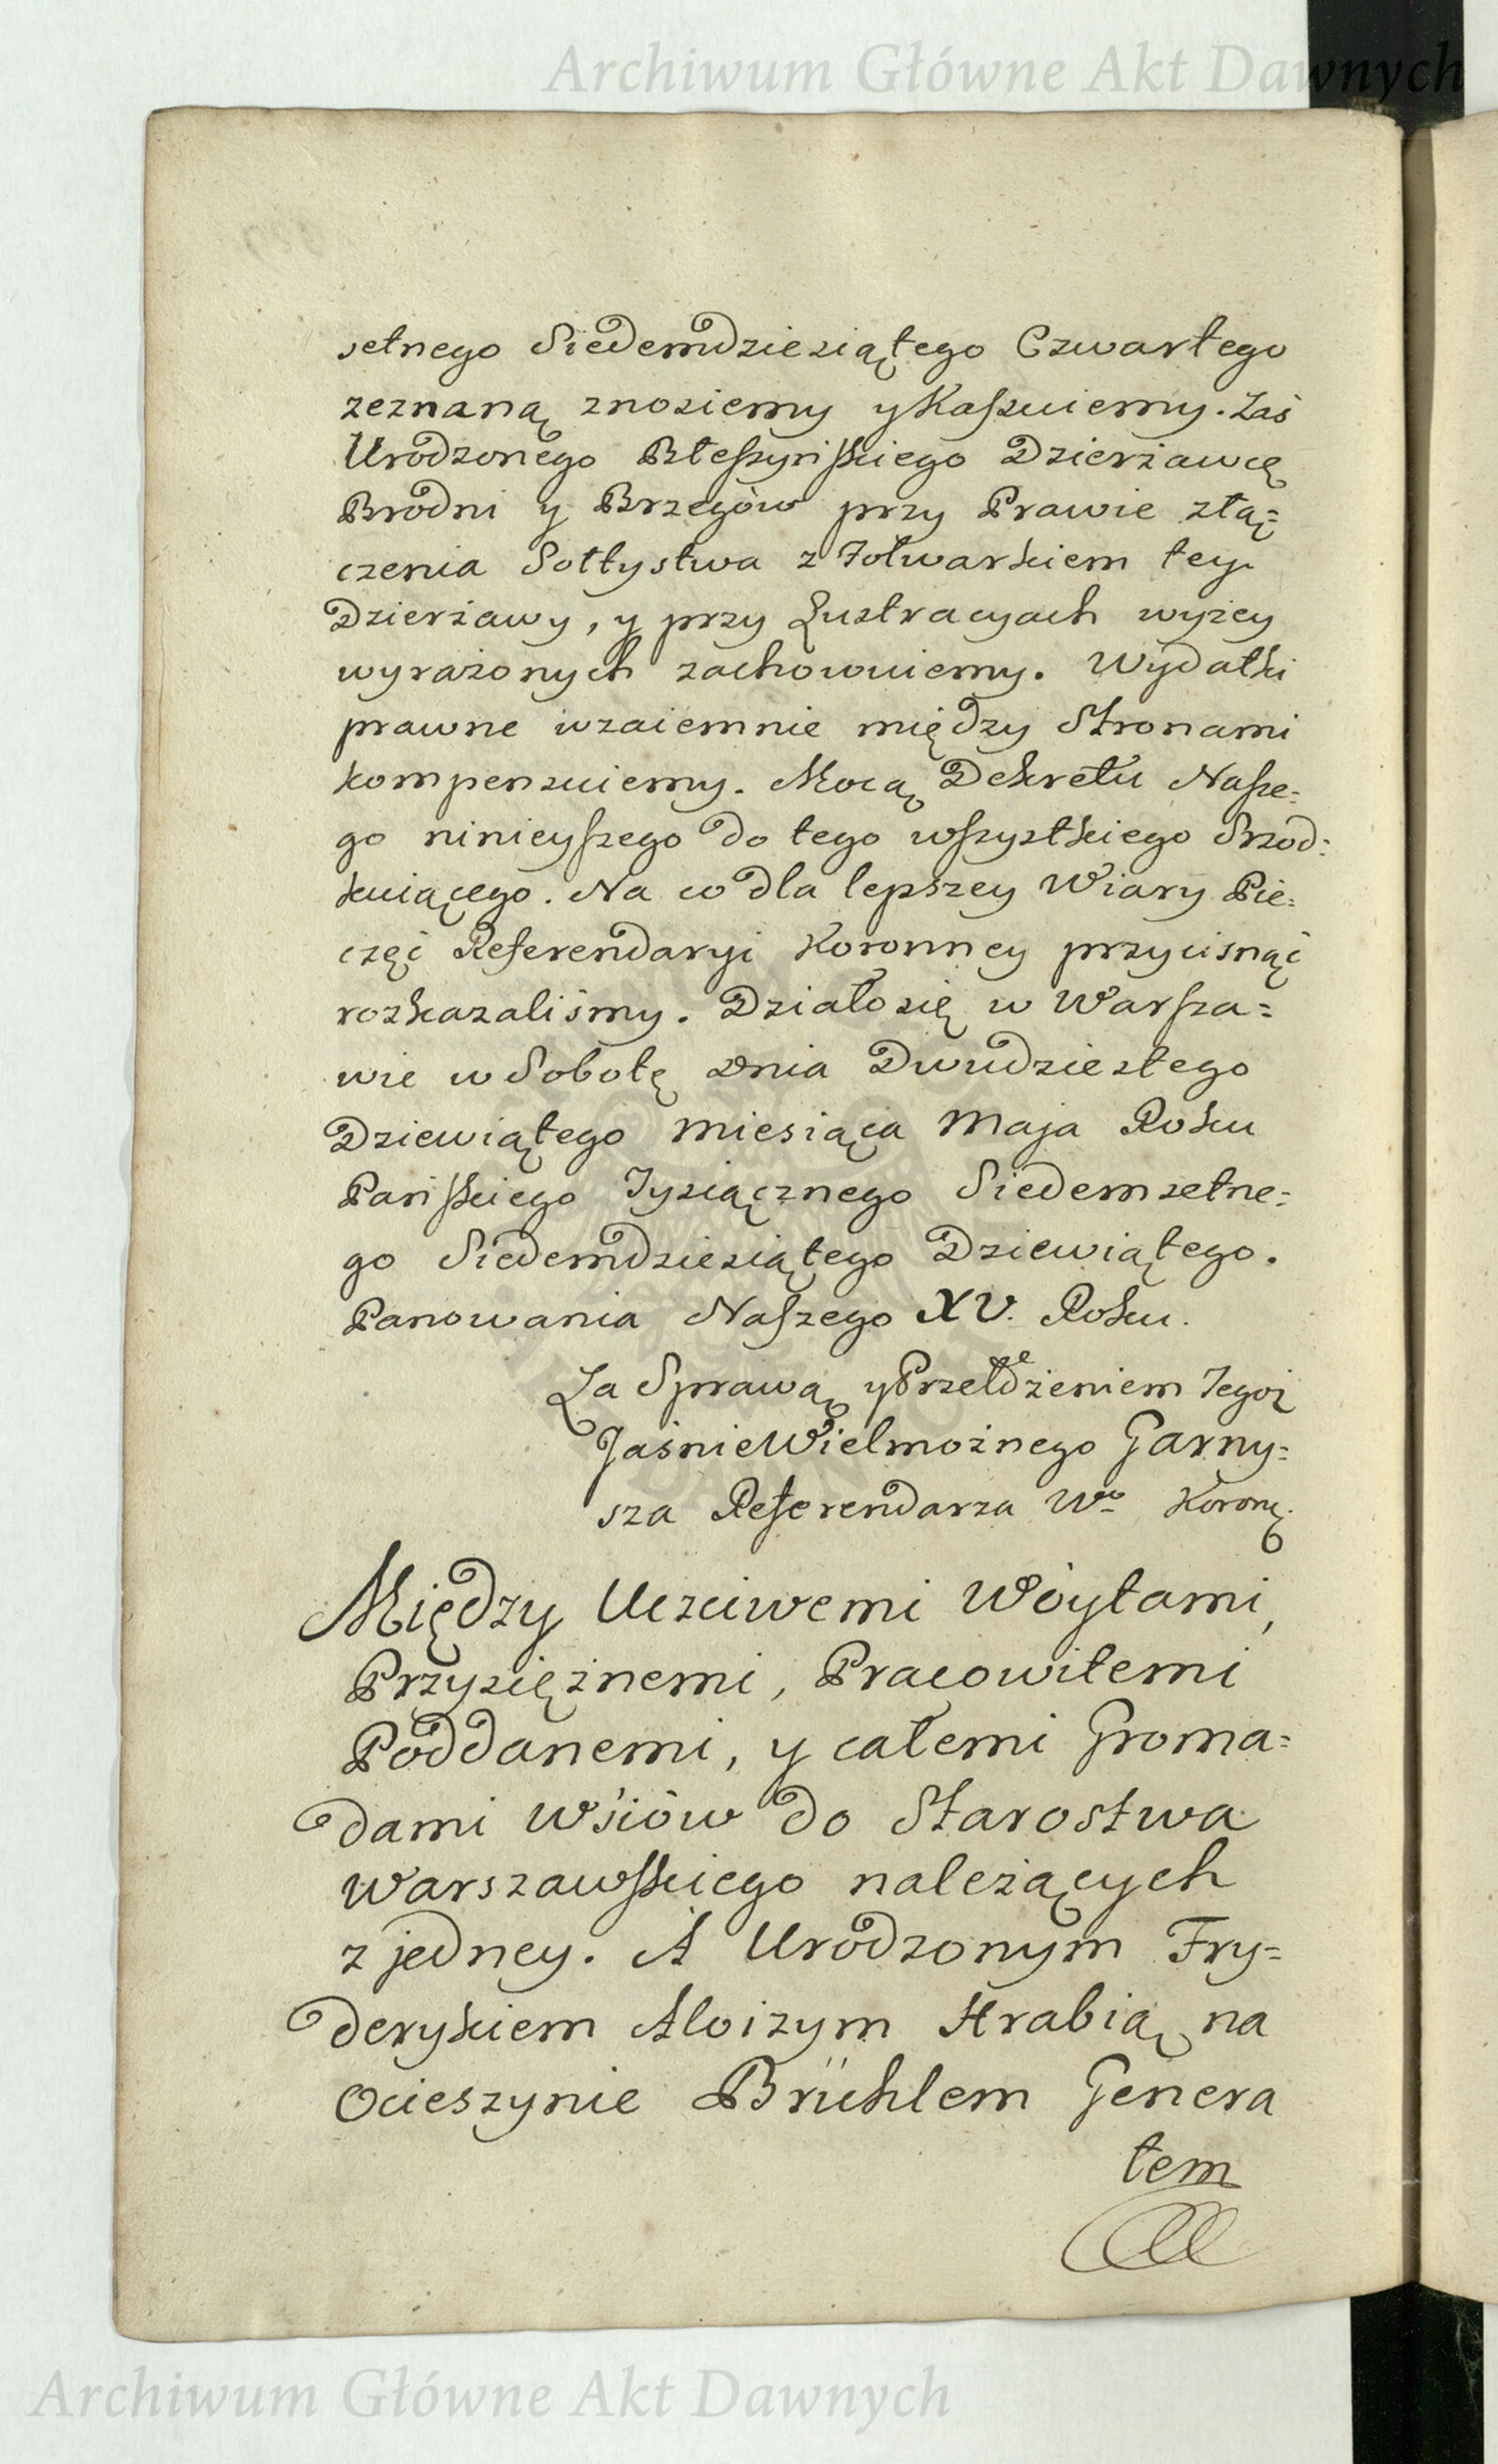 Archiwum Główne Akt Dawnych
setnego Siedemdziesiątego Czwartego
zeznaną znosiemy y Kaszuiemy. Zaś
Urodzonego Błeszyńskiego Dzierżawcę
Brodni y Brzegów przy Prawie złą=
czenia Sołtystwa z Folwarkiem tey
Dzierżawy, y przy Lustracyach wyżey
wyrażonych zachowuiemy. Wydatki
prawne wzaiemnie między Stronami
kompensuiemy. Mocą Dekretu Nasze=
go ninieyszego do tego wszystkiego Srzod=
kuiącego. Na co dla lepszey Wiary Pie=
częć Referendaryi Koronney przycisnąć
rozkazaliśmy. Działo się w Warsza=
wie w Sobotę Dnia Dwudziestego
Dziewiątego Miesiąca Maja Roku
Pańskiego Tysiącznego Siedemsetne=
go Siedemdziesiątego Dziewiątego.
Panowania Naszego XV. Roku.
Za Sprawą y Przełożeniem Tegoż
JaśnieWielmożnego Garny=
sza Referendarza Wo Koronę.
Między Uczciwemi Wóytami,
Przysiężnemi, Pracowitemi
Poddanemi, y całemi Groma=
dami Wsiów do Starostwa
Warszawskiego należących
z jedney. A Urodzonym Fry=
derykiem Aloizym Hrabią na
Ocieszynie Brühlem Genera
łem
Archiwum Główne Akt Dawnych